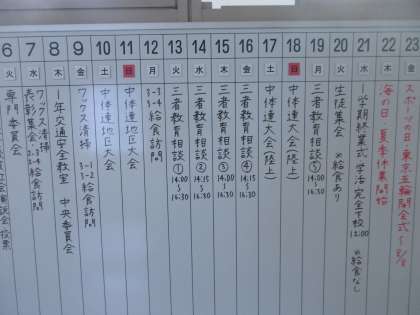 6 火 専門委員会
7 水 ワックス清掃
表彰集会 2-3、2-4給食訪問
8 木 1年交通安全教室 中央委員会
9 金 ワックス清掃 3-1 3-2 給食訪問
10 土 中体連地区大会
11 日 中体連地区大会
12 月 3-3 3-4 給食訪問
13 火 三者教育相談① 14:00〜16:30
14 水 三者教育相談② 14:15〜16:30
15 木 三者教育相談③ 14:00〜16:30
16 金 三者教育相談④ 14:15〜16:30
17 土 中体連大会(陸上)
18 日 中体連大会(陸上)
19 月 三者教育相談⑤ 14:00〜16:30
20 火 生徒集会 ※給食あり
21 水 1学期終業式 学活 完全下校 12:00 ※給食なし
22 木 海の日 夏季休業開始
23 スポーツの日 東京五輪開会式〜8/8